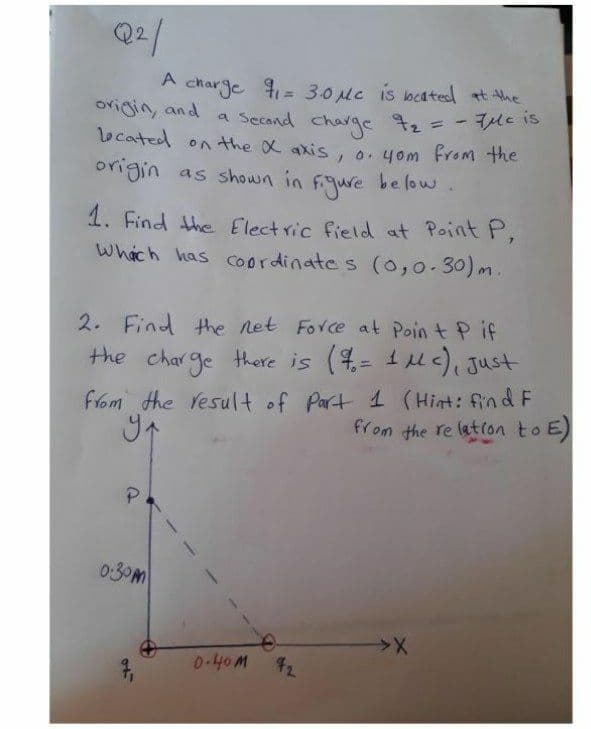 Q2/
A charge q1 = 3.0 Mc is located at the
origin, and a second charge q2 = - 7Mc is
located on the x axis, 0.40m from the
origin as shown in figure below.
1. Find the Electric field at Point P,
Which has coordinates (0,0.30)m.
2. Find the net Force at Point P if
the charge there is (q. = 1 Mc), Just
from the result of Part 1 (Hint: find F
from the relation to E)
y
P
0.30m
q1
0.40M
q2
X